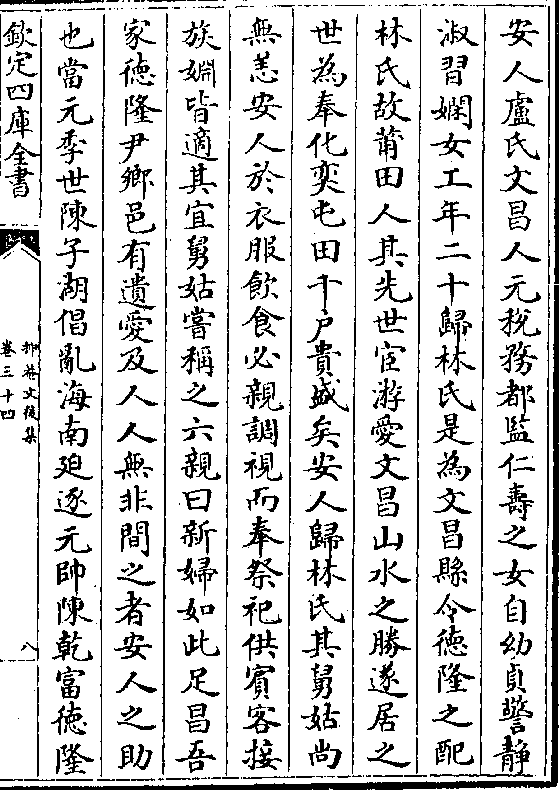 安人盧氏文昌人元稅務都監仁壽之女自幼貞警靜
淑習嫻女工年二十歸林氏是為文昌縣令德隆之配
林氏故莆田人其先世宦游愛文昌山水之勝遂居之
世為奉化奕屯田千户貴盛矣安人歸林氏其舅姑尚
無恙安人於衣服飲食必親調視而奉祭祀供賓客接
族婣皆適其宜舅姑嘗稱之六親曰新婦如此足昌吾
家德隆尹鄉邑有遺愛及人人無非間之者安人之助
也當元季世陳子瑚倡亂海南廹逐元帥陳乾富德隆
欽定四庫全書
抑菴文後集
卷三十四
八